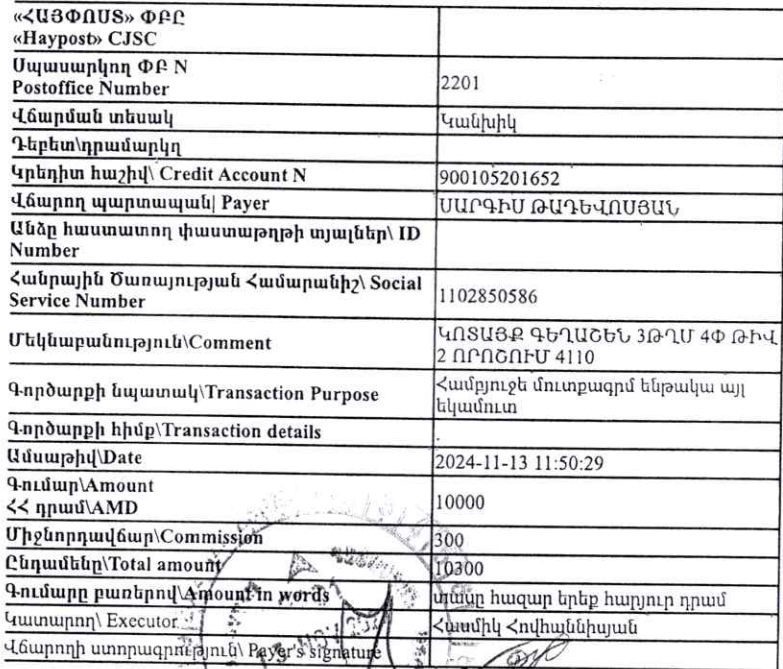 «ՀԱՅՓՈՍՏ» ՓԲԸ
«Haypost» CJSC
Սպասարկող ՓԲ N
Postoffice Number
2201
Վճարման տեսակ
Կանխիկ
Դեբետ\դրամարկղ
Կրեդիտ հաշիվ\ Credit Account N
900105201652
Վճարող պարտապան| Payer
ՍԱՐԳԻՍ ԹԱԴԵՎՈՍՅԱՆ
Անձը հաստատող փաստաթղթի տյալներ\ ID
Number
Հանրային Ծառայության Համարանիշ\ Social
Service Number
1102850586
Մեկնաբանություն\Comment
ԿՈՏԱՅՔ ԳԵՂԱՇԵՆ 3ԹՂՄ 4Փ ԹԻՎ
2 ՈՐՈՇՈՒՄ 4110
Գործարքի նպատակ\Transaction Purpose
Համբյուջե մուտքագրմ ենթակա այլ
եկամուտ
Գործարքի հիմք\Transaction details
.
Ամսաթիվ\Date
2024-11-13 11:50:29
Գումար\Amount
ՀՀ դրամ\AMD
10000
Միջնորդավճար\Commission
300
Ընդամենը\Total amount
10300
Գումարը բառերով\Amount in words
տասը հազար երեք հարյուր դրամ
Կատարող\ Executor
Հասմիկ Հովհաննիսյան
Վճարողի ստորագրություն\ Payer's signature